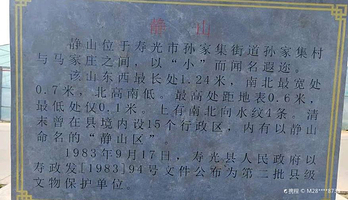 静山
静山位于寿光市孙家集街道孙家集村
与马家庄之间，以“小”而闻名遐迩。
该山东西最长处1.24米，南北最宽处
0.7米，北高南低。最高处距地表0.6米，
最低处仅0.1米。上有南北向水纹4条。清
末曾在县境内设15个行政区，内有以静山
命名的“静山区”。
1983年9月17日，寿光县人民政府以
寿政发[1983]94号文件公布为第二批县级
文物保护单位。